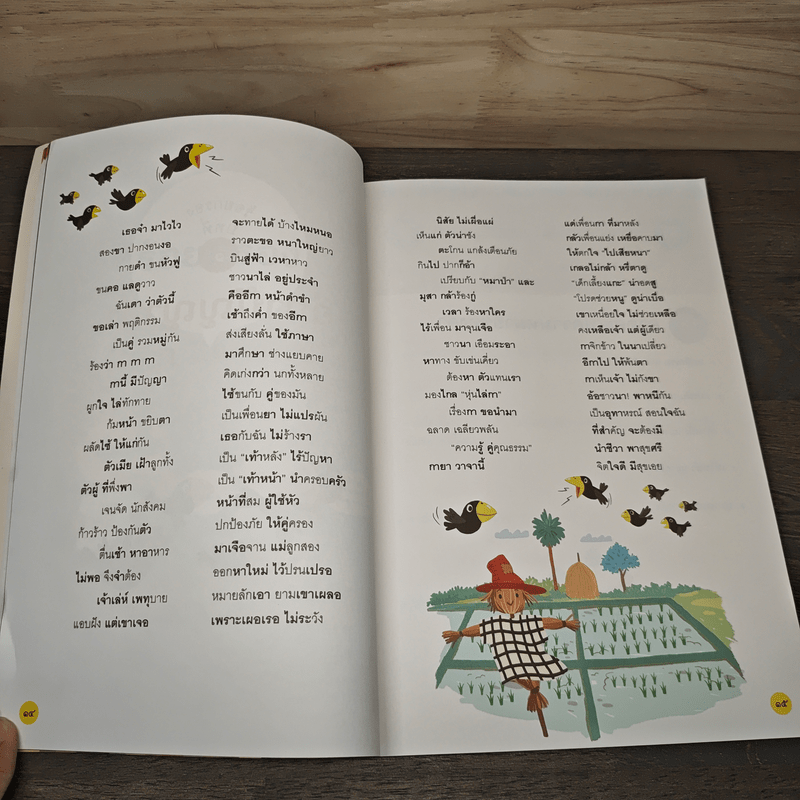 เธอจำ มาไวไว จะทายได้ บ้างไหมหนอ
สองขา ปากงอนงอ ราวตะขอ หนาใหญ่ยาว
กายดำ ขนหัวฟู บินสู่ฟ้า เวหาหาว
ขนคอ แลดูวาว ชาวนาไล่ อยู่ประจำ
ฉันเดา ว่าตัวนี้ คืออีกา หน้าดำขำ
ขอเล่า พฤติกรรม เช้าถึงค่ำ ของอีกา
เป็นคู่ รวมหมู่กัน ส่งเสียงลั่น ใช้ภาษา
ร้องว่า กา กา กา มาศึกษา ช่างแยบคาย
กานี้ มีปัญญา คิดเก่งกว่า นกทั้งหลาย
ผูกใจ ไล่ทักทาย ไซ้ขนกับ คู่ของมัน
ก้มหน้า ขยิบตา เป็นเพื่อนยา ไม่แปรผัน
ผลัดไซ้ ให้แก่กัน เธอกับฉัน ไม่ร้างรา
ตัวเมีย เฝ้าลูกทั้ง เป็น "เท้าหลัง" ไร้ปัญหา
ตัวผู้ ที่พึ่งพา เป็น "เท้าหน้า" นำครอบครัว
เจนจัด นักสังคม หน้าที่สม ผู้ใช้หัว
ก้าวร้าว ป้องกันตัว ปกป้องภัย ให้คู่ครอง
ตื่นเช้า หาอาหาร มาเจือจาน แม่ลูกสอง
ไม่พอ จึงจำต้อง ออกหาใหม่ ไว้ปรนเปรอ
เจ้าเล่ห์ เพทุบาย หมายลักเอา ยามเขาเผลอ
แอบฝัง แต่เขาเจอ เพราะเผอเรอ ไม่ระวัง
๑๔
นิสัย ไม่เผื่อแผ่ แต่เพื่อนกา ที่มาหลัง
เห็นแก่ ตัวน่าชัง กลัวเพื่อนแย่ง เหยื่อคาบมา
ตะโกน แกล้งเตือนภัย ให้ตกใจ "ไปเสียหนา"
กินไป ปากก็อ้า เกลอไม่กล้า หรี่ตาดู
เปรียบกับ "หมาป่า" และ "เด็กเลี้ยงแกะ" น่าอดสู
มุสา กล้าร้องกู่ "โปรดช่วยหนู" ดูน่าเบื่อ
เวลา ร้องหาใคร เขาเหนื่อยใจ ไม่ช่วยเหลือ
ไร้เพื่อน มาจุนเจือ คงเหลือเจ้า แต่ผู้เดียว
ชาวนา เอือมระอา กาจิกข้าว ในนาเปลี่ยว
หาทาง ขับเช่นเคี่ยว อีกาไป ให้พ้นตา
ต้องหา ตัวแทนเรา กาเห็นเจ้า ไม่กังขา
มองไกล "หุ่นไล่กา" อ้อชาวนา! พาหนีกัน
เรื่องกา ขอนำมา เป็นอุทาหรณ์ สอนใจฉัน
ฉลาด เฉลียวพลัน ที่สำคัญ จะต้องมี
"ความรู้ คู่คุณธรรม" นำชีวา พาสุขศรี
กายา วาจานี้ จิตใจดี มีสุขเอย
๑๕